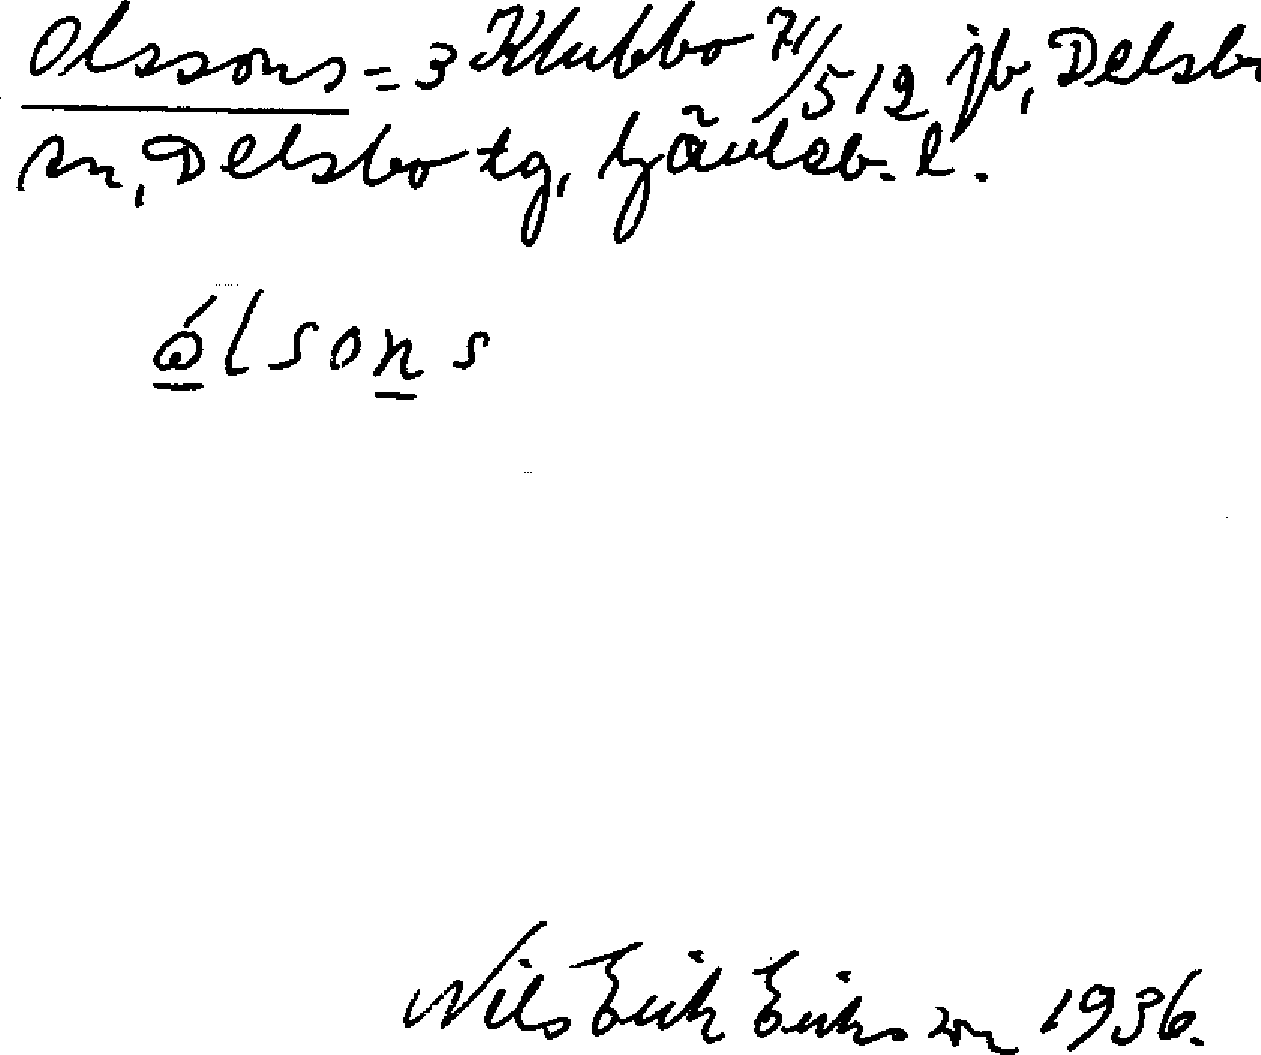 Olssons = 3 Klubbo 71/512 jb, Delsbo
sn, Delsbo tg, Gävleb. l.
ólsons
Nils Erik Eriksson 1936.